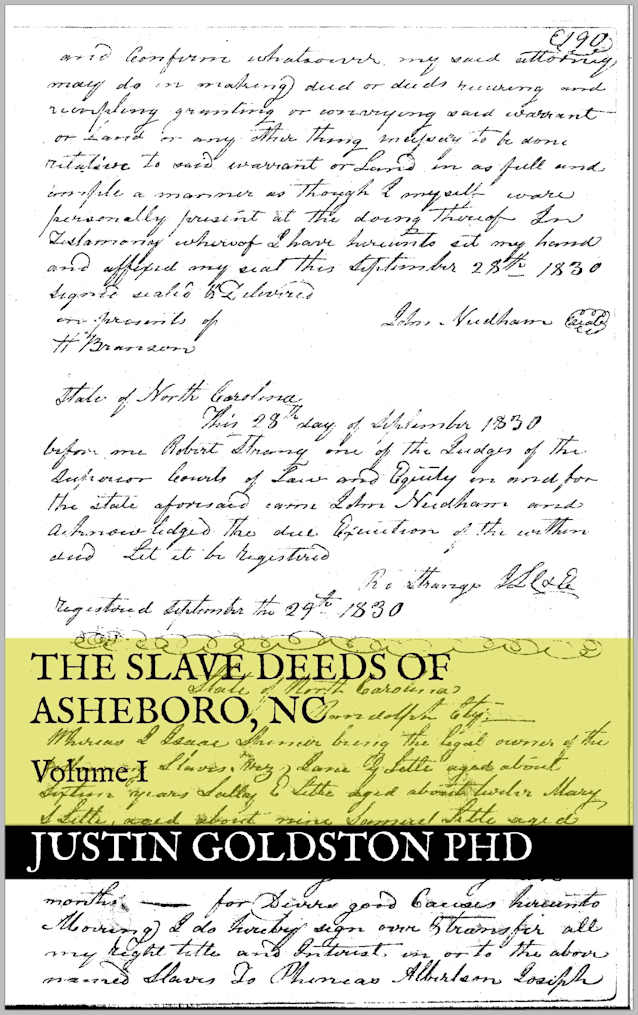 190
and Confirm whatsoever my said attorney
may do in making deed or deeds receiving and
granting or conveying said warrant
or Land or any other thing to be done
relative to said warrant or Land in as full and
ample a manner as though I myself ware
personally present at the doing thereof In
Testamony whereof I have hereunto set my hand
and affixed my seal this September 28th 1830
Signed seald & Delivered
in presents of John Needham Seal
H Branson
State of North Carolina
This 28th day of September 1830
before me Robert Strang one of the Judges of the
Superior Courts of Law and Equity in and for
the state aforesaid came John Needham and
acknowledged the due Execution of the within
deed Let it be Registered
Ro Strange JSCL&E
registered September the 29th 1830
State of North Carolina
THE SLAVE DEEDS OF
Randolph Cty
ASHEBORO, NC
Whereas I Isaac being the legal owner of the
Slaves Viz, Jane Little aged about
Volume I
Sixteen years Salley E Little aged about twelve Mary
S Little, aged about nine Samuel Little aged
JUSTIN GOLDSTON PHD
months — for Divers good Causes hereunto
Moving I do hereby sign over & transfer all
my right title and Interest in or to the above
named Slaves To Phineas Albertson Joseph